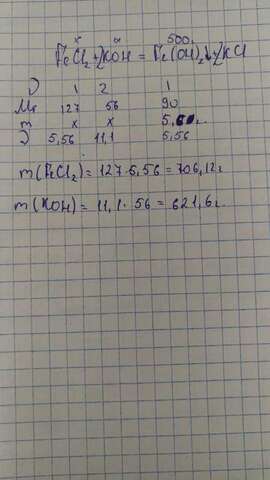 x x 500г
FeCl₂+2KOH = Fe(OH)₂↓+2KCl
ν 1 2 1
Mr 127 56 90
m x x
ν 5,56 11,1 5,56
m(FeCl₂)=127·5,56=706,12г
m(KOH)=11,1·56=621,6г